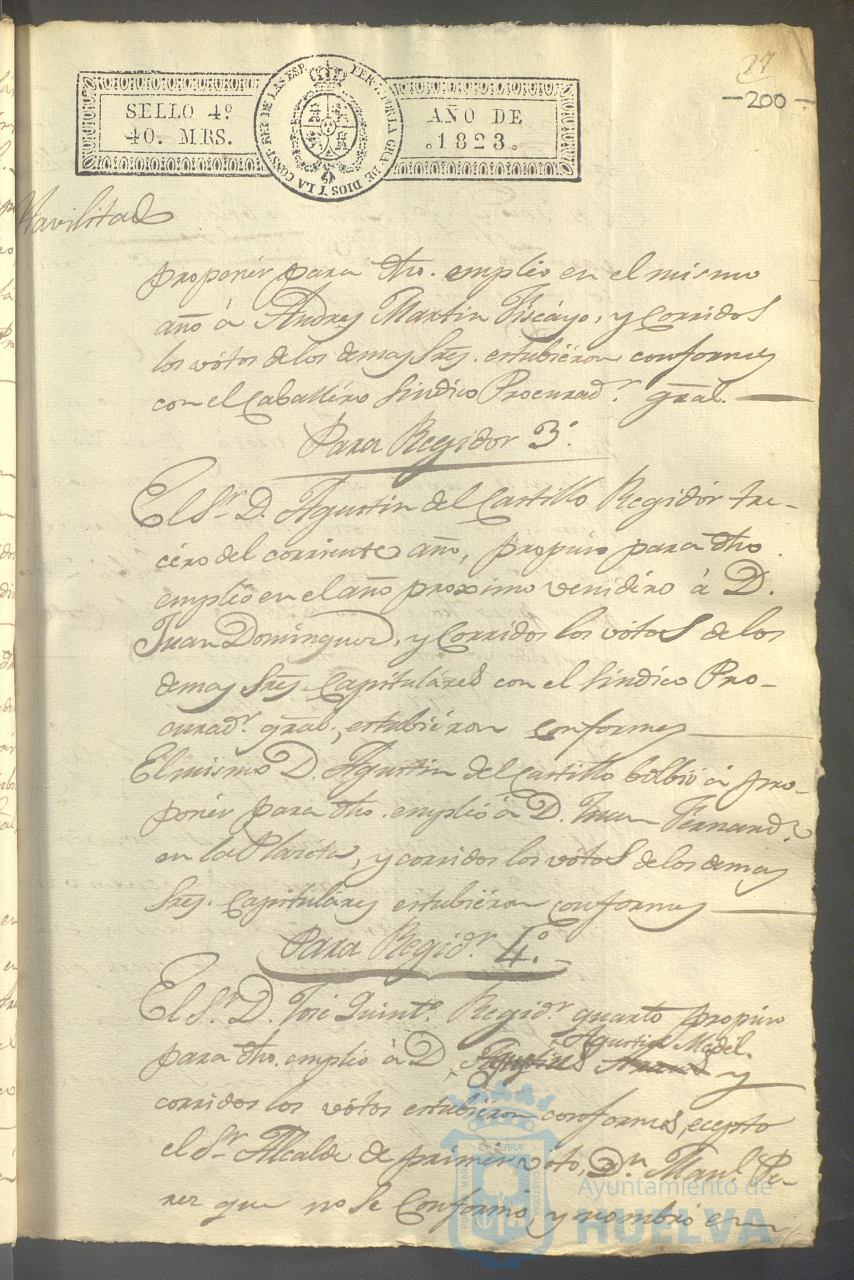 27
-200-
SELLO 4º
40. MRS.
AÑO DE
1823.
POR LA GRA. DE DIOS Y LA CONST. REY DE LAS ESP.
Havilitado
proponer para dho. empléo en el mismo
año á Andres Martin Viscáyo, y corridos
los vótos de los demas Sres. estubiéron conformes
con el Caballéro Sindico Procurad.r gral.
Para Regidor 3.º
El S.r D. Agustin del Castillo Regidór ter-
céro del corriente año, propúso para dho
empléo en el año proximo venidéro á D.
Juan Dominguez, y corridos los vótos de los
demas Sres. Capituláres con el Sindico Pro-
curad.r gral, estubiéron conformes
El mismo D. Agustin del Castillo bolbió á pro-
ponér para dho. empléo á D. Juan Fernand.z
en la Placéta, y corridos los vótos de los demas
Sres. Capituláres estubiéron conformes
Para Regid.r 4.º
El S.r D. José Quint.º Regid.r quarto propúso
Agustin Medel.
para dho. empléo á D. Agustin y
corridos los vótos estubiéron conformes, ecepto
el S.r Alcalde de primér vóto, D.n Man.l Pe-
rez que no se conformó, y nombró en
Ayuntamiento de
HUELVA